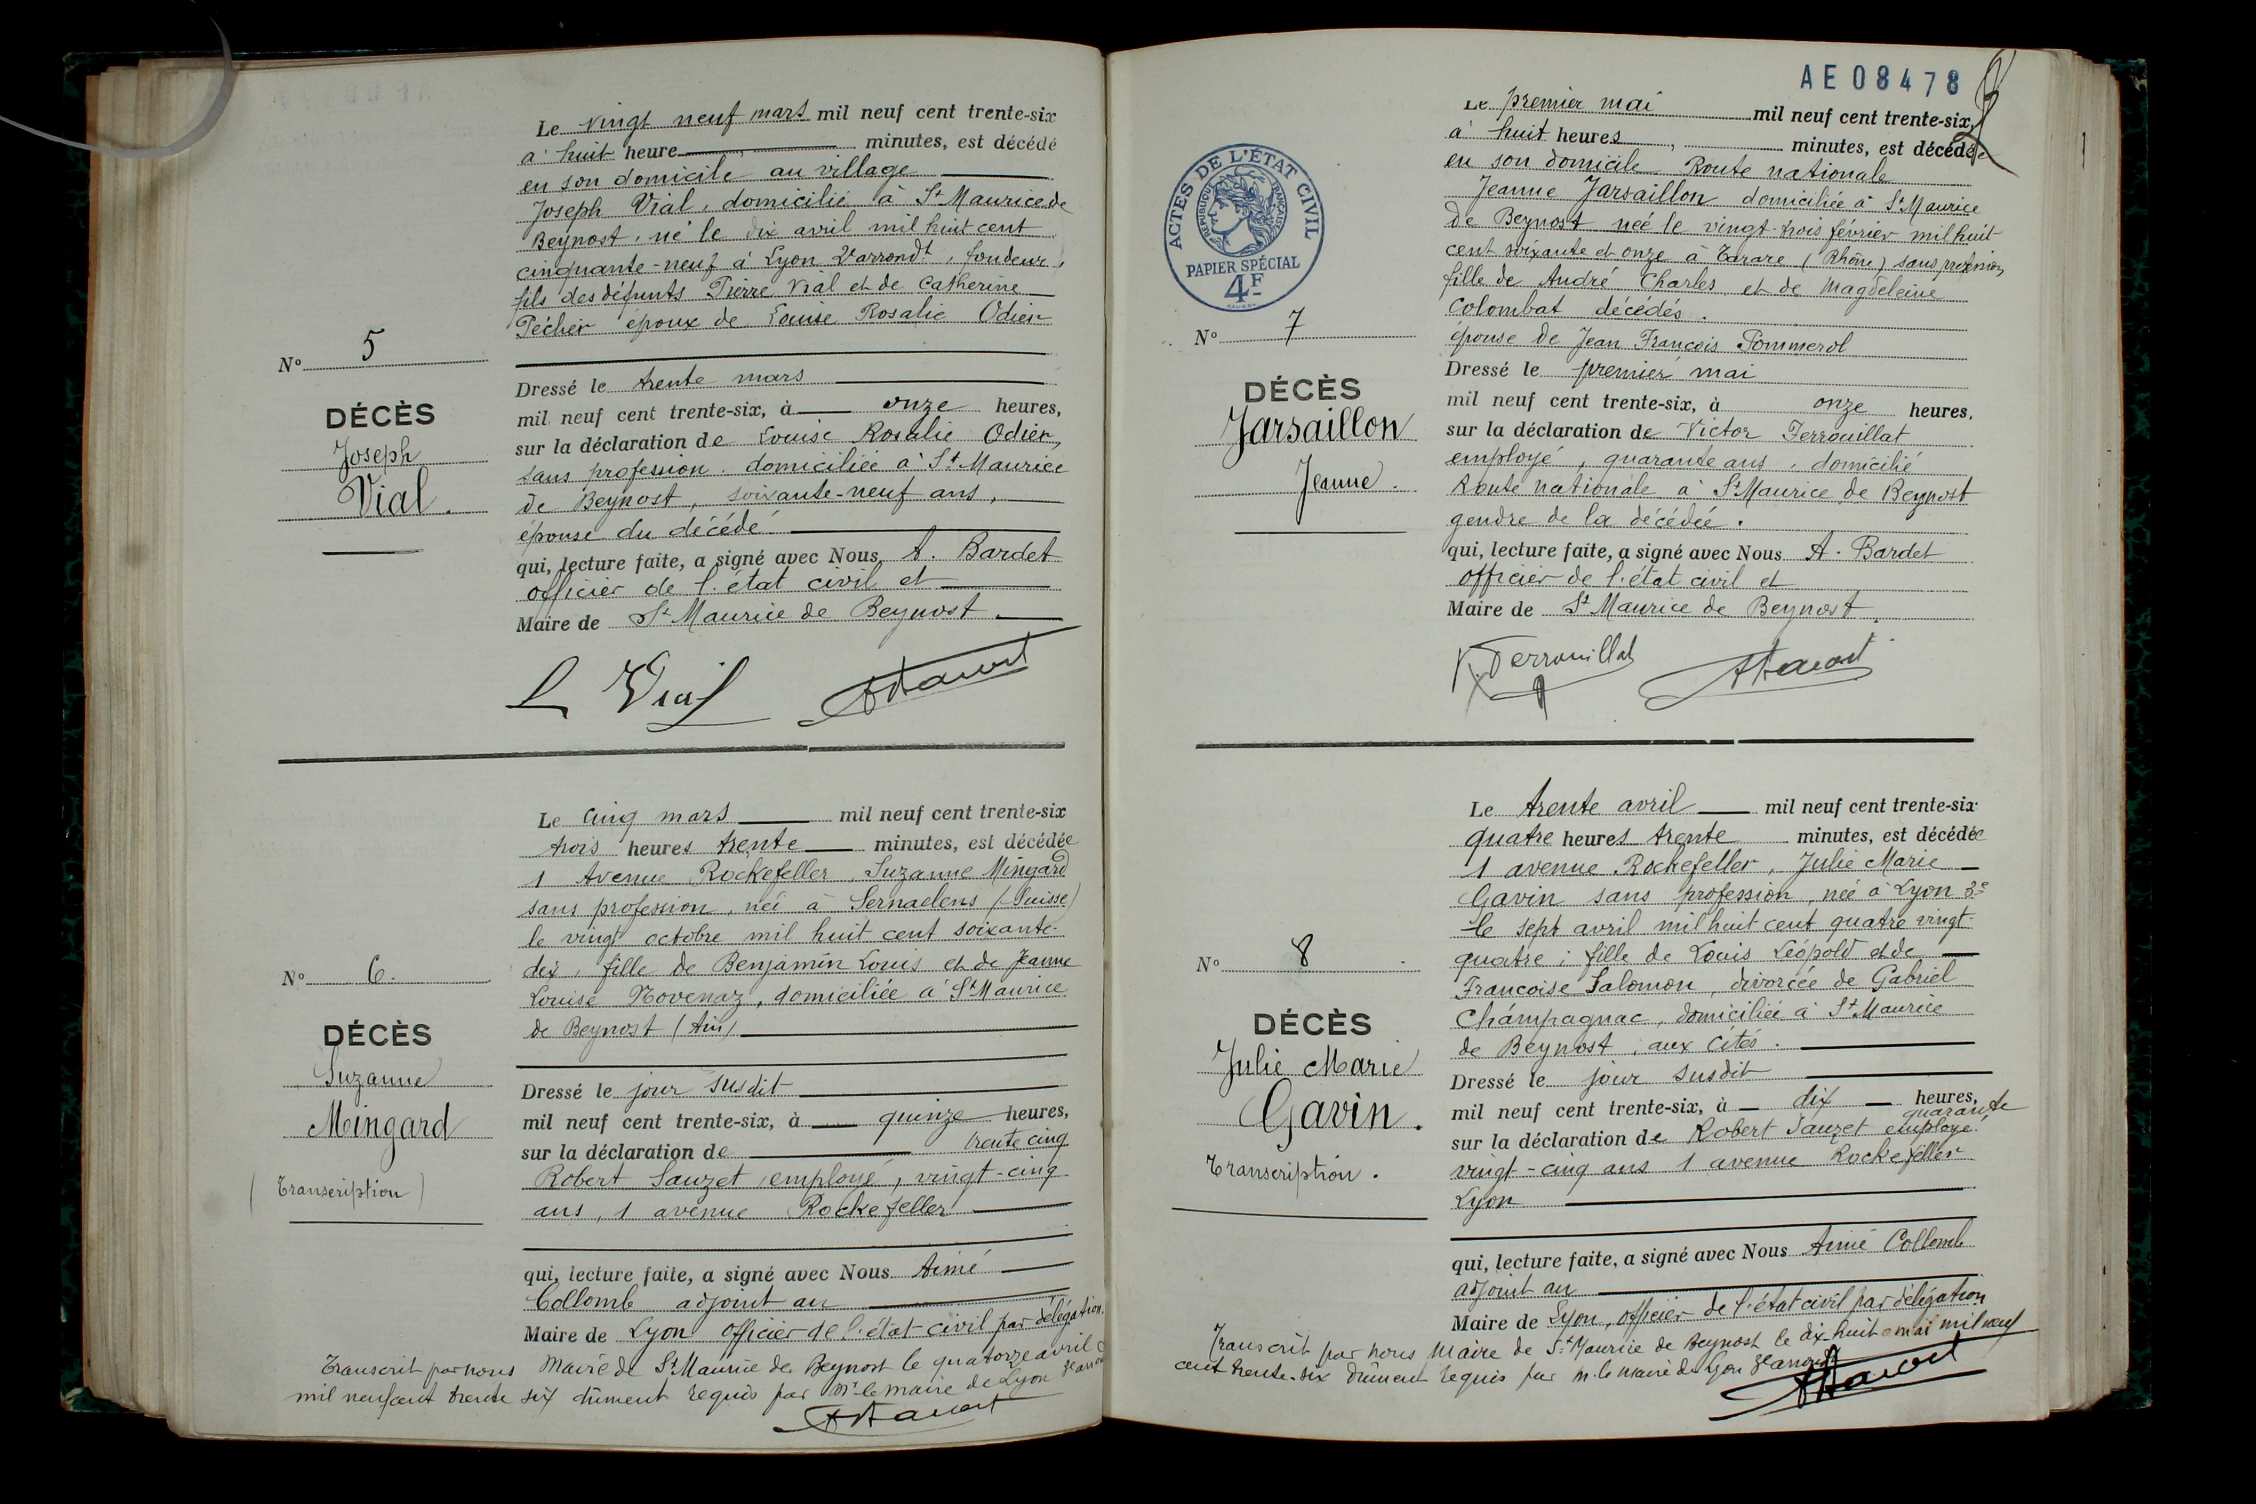 Le vingt neuf mars mil neuf cent trente-six
à huit heure minutes, est décédé
en son domicile au village
Joseph Vial, domicilié à St Maurice de
Beynost, né le dix avril mil huit cent
cinquante-neuf à Lyon 2e arrondt, fondeur,
fils des défunts Pierre Vial et de Catherine
Pécher époux de Louise Rosalie Odier
N° 5
DÉCÈS
Joseph
Vial.
Dressé le trente mars
mil neuf cent trente-six, à onze heures,
sur la déclaration de Louise Rosalie Odier,
sans profession, domiciliée à St Maurice
de Beynost, soixante-neuf ans,
épouse du décédé
qui, lecture faite, a signé avec Nous A. Bardet
officier de l'état civil et
Maire de St Maurice de Beynost.
L Vial
Le cinq mars mil neuf cent trente-six
trois heures trente minutes, est décédée
1 Avenue Rockefeller Suzanne Mingard
sans profession, née à Sernaelens (Suisse)
le vingt octobre mil huit cent soixante-
dix, fille de Benjamin Louis et de Jeanne
Louise Novenaz, domiciliée à St Maurice
de Beynost (Ain)
N° 6.
DÉCÈS
Suzanne
Mingard
(Transcription)
Dressé le jour susdit
mil neuf cent trente-six, à quinze heures,
sur la déclaration de trente cinq
Robert Sauzet, employé, vingt-cinq
ans, 1 avenue Rockefeller
qui, lecture faite, a signé avec Nous Aimé
Collomb adjoint au
Maire de Lyon officier de l'état civil par délégation.
Transcrit par nous Maire de St Maurice de Beynost le quatorze avril
mil neuf cent trente six dûment requis par Mr le maire de Lyon 3e arrond
AE08478
Le premier mai mil neuf cent trente-six,
à huit heures, minutes, est décédée
en son domicile Route nationale
Jeanne Jarsaillon domiciliée à St Maurice
de Beynost née le vingt-trois février mil huit
cent soixante et onze à Tarare (Rhône) sans profession
fille de André Charles et de Magdeleine
Colombat décédés.
épouse de Jean François Pommerol
ACTES DE L'ÉTAT CIVIL
RÉPUBLIQUE FRANÇAISE
PAPIER SPÉCIAL
4F
N° 7
DÉCÈS
Jarsaillon
Jeanne.
Dressé le premier mai
mil neuf cent trente-six, à onze heures,
sur la déclaration de Victor Ferrouillat
employé, quarante ans, domicilié
Route nationale à St Maurice de Beynost
gendre de la décédée.
qui, lecture faite, a signé avec Nous A. Bardet
officier de l'état civil et
Maire de St Maurice de Beynost.
V. Ferrouillat
Le trente avril mil neuf cent trente-six
quatre heures trente minutes, est décédée
1 avenue Rockefeller, Julie Marie
Gavin sans profession, née à Lyon 3e
le sept avril mil huit cent quatre vingt-
quatre; fille de Louis Léopold et de
Françoise Salomon, divorcée de Gabriel
Champagnac, domiciliée à St Maurice
de Beynost, aux cités.
N° 8
DÉCÈS
Julie Marie
Gavin.
Transcription.
Dressé le jour susdit
mil neuf cent trente-six, à dix heures,
quarante
sur la déclaration de Robert Sauzet employé
vingt-cinq ans 1 avenue Rockefeller
Lyon
qui, lecture faite, a signé avec Nous Aimé Collomb
adjoint au
Maire de Lyon, officier de l'état civil par délégation
Transcrit par nous Maire de St Maurice de Beynost le dix-huit mai mil neuf
cent trente-six dûment requis par M. le Maire de Lyon 3e arrondt